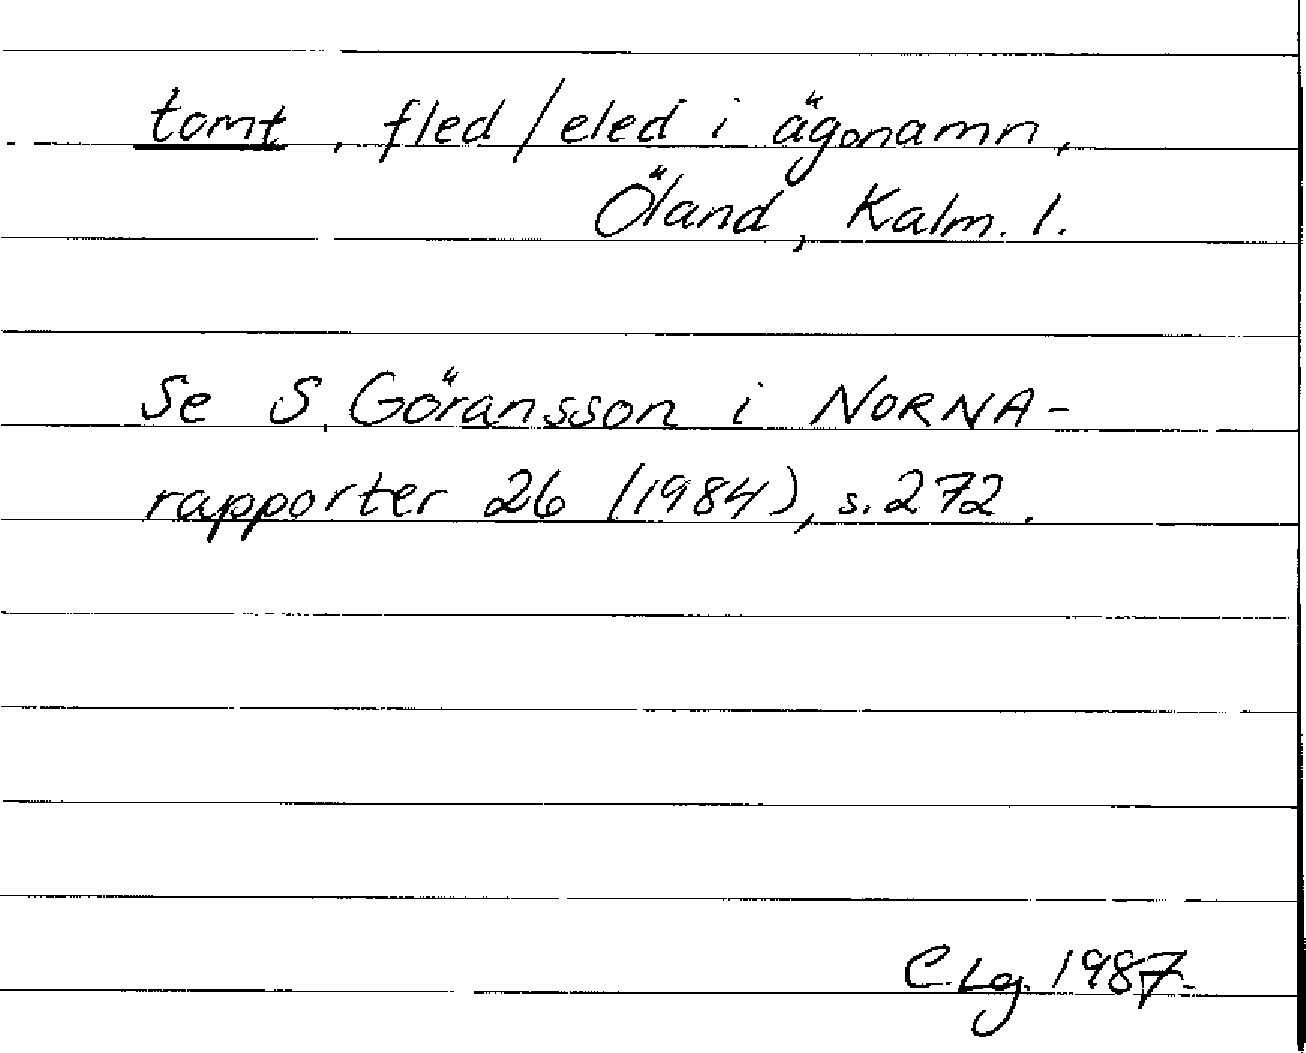 tomt, fled/eled i ägonamn,
Öland, Kalm. l.
Se S. Göransson i NORNA-
rapporter 26 (1984), s. 272.
C. Lg. 1987